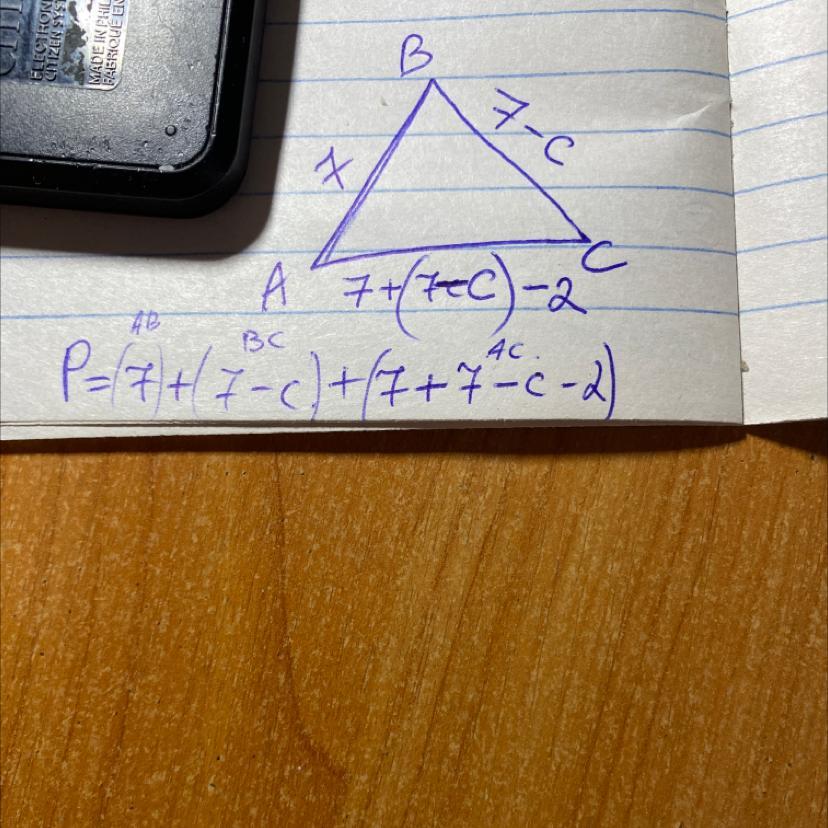 ELECTRON
CITIZEN SYS
MADE IN PHIL
FABRIQUE EN
B
7
7-c
A
C
7+(7-c)-2
AB
BC
AC
P=(7)+(7-c)+(7+7-c-2)